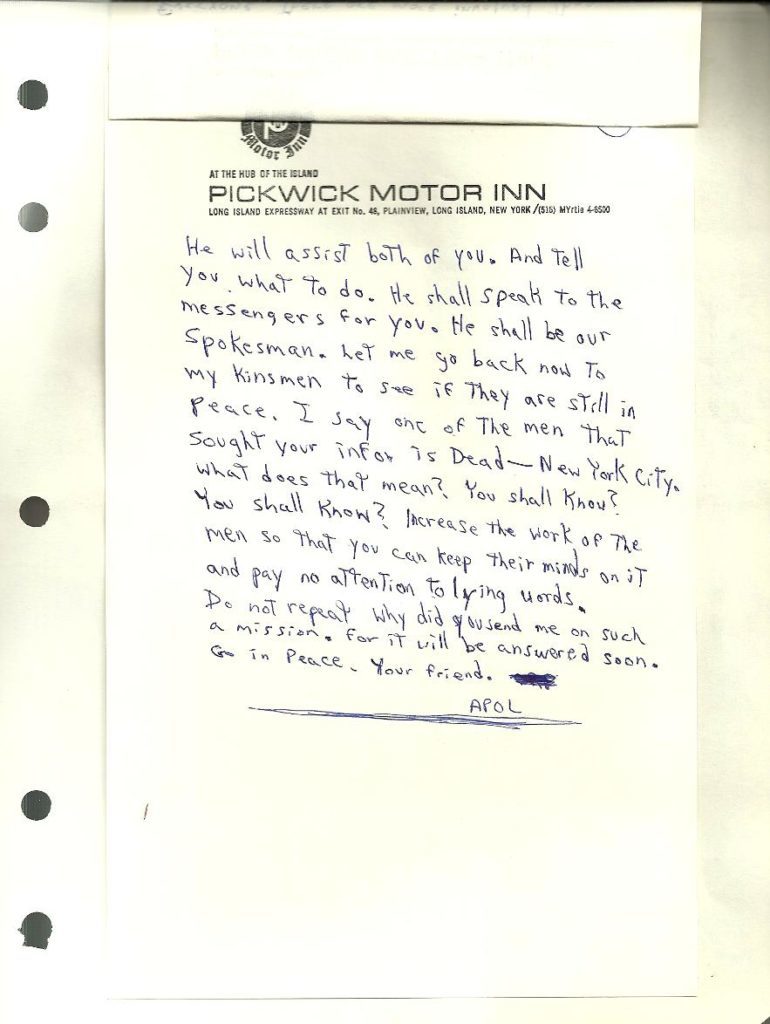 Motor Inn
AT THE HUB OF THE ISLAND
PICKWICK MOTOR INN
LONG ISLAND EXPRESSWAY AT EXIT No. 48, PLAINVIEW, LONG ISLAND, NEW YORK / (516) MYrtle 4-8500
He will assist both of you. And Tell
You what To do. He shall speak to the
messengers for you. He shall be our
Spokesman. Let me go back now To
my Kinsmen to see if They are still in
Peace. I say one of The men That
Sought your infor is Dead — New York City.
What does that mean? You shall Know?
You shall Know? Increase the work of The
men so that you can keep their minds on iT
and pay no attention to lying words.
Do not repeat Why did you send me on such
a mission. for it will be answered soon.
Go in Peace. Your friend.
APOL